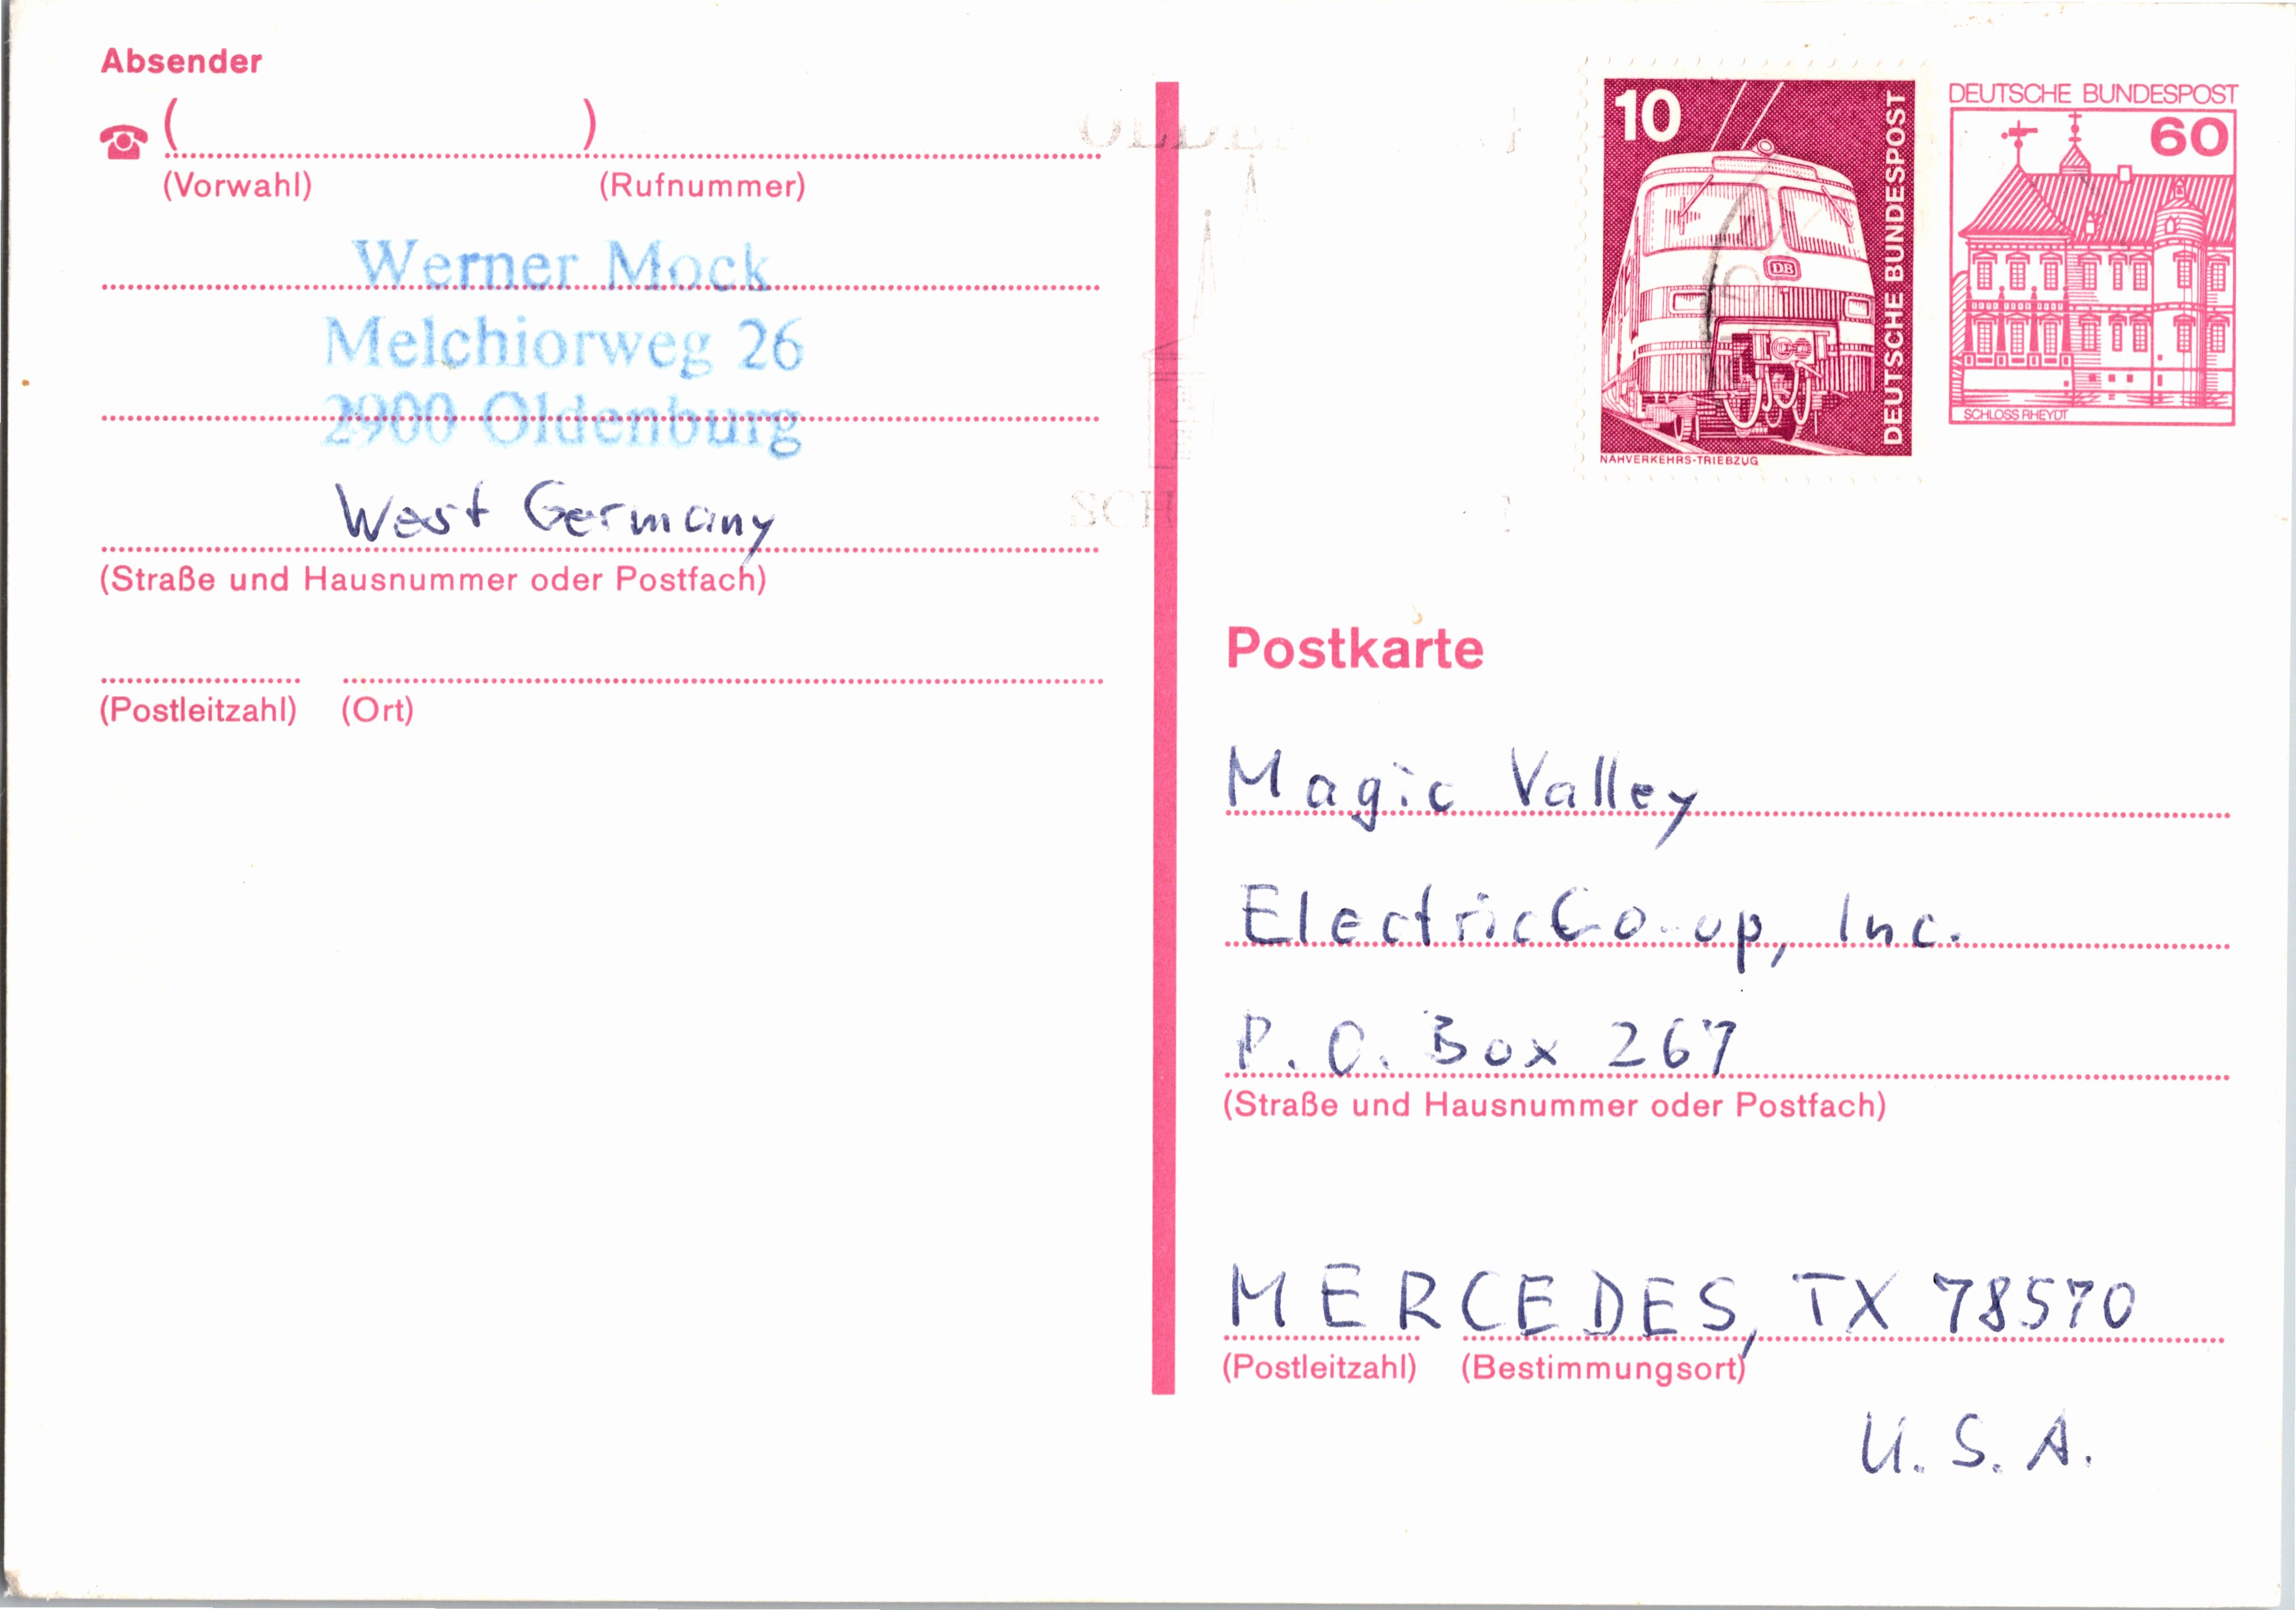 Absender
( )
(Vorwahl) (Rufnummer)
Werner Mock
Melchiorweg 26
2900 Oldenburg
West Germany
(Straße und Hausnummer oder Postfach)
(Postleitzahl) (Ort)
10
DEUTSCHE BUNDESPOST
DB
NAHVERKEHRS-TRIEBZUG
DEUTSCHE BUNDESPOST
60
SCHLOSS RHEYDT
Postkarte
Magic Valley
Electric Co-up, Inc.
P. O. Box 267
(Straße und Hausnummer oder Postfach)
MERCEDES, TX 78570
(Postleitzahl) (Bestimmungsort)
U. S. A.